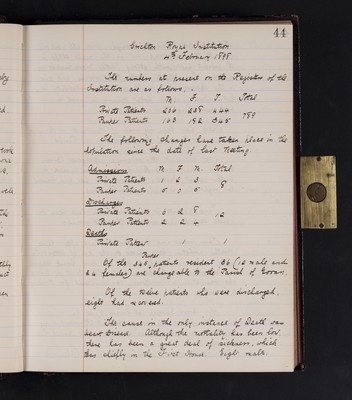 44
Crichton Royal Institution
4th February 1898.
The numbers at present on the Registers of the
Institution are as follows: -
M F T. Total
Private Patients 206 238 444
789
Pauper Patients 163 182 345
The following changes have taken place in the
population since the date of last Meeting
Admissions M F M. Total
Private Patients 1 2 3
8
Pauper Patients 5 0 5
Discharges
Private Patients 6 2 8
12
Pauper Patients 2 2 4
Deaths
Private Patient 1 1
Pauper
Of the 345 patients resident 36 (12 male and
24 females) are chargeable to the Parish of Govan.
Of the twelve patients who were discharged,
eight had recovered.
The cause in the only instance of Death was
Although the mortality has been low
there has been a great deal of sickness, which
was chiefly in the First House. Eight male